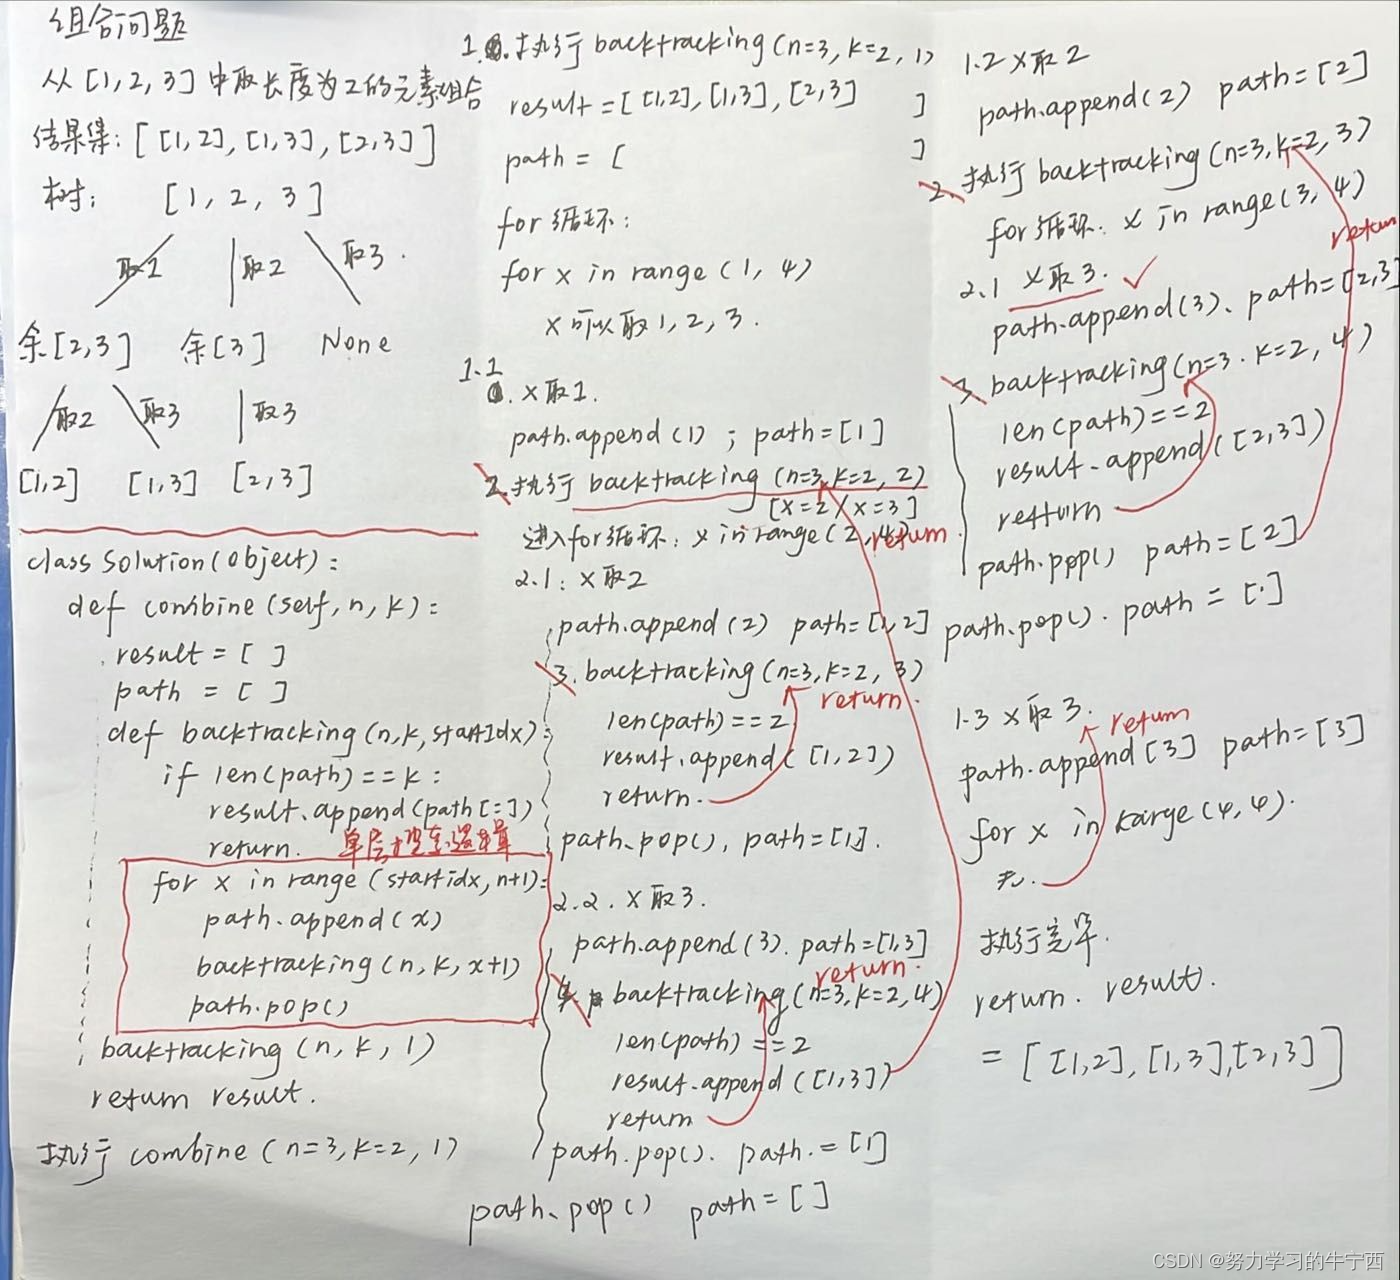 组合问题
从[1,2,3]中取长度为2的元素组合
结果集:[[1,2],[1,3],[2,3]]
树: [1,2,3]
取1 取2 取3.
余[2,3] 余[3] None
取2 取3 取3
[1,2] [1,3] [2,3]
class Solution(Object):
def combine(self,n,k):
result=[ ]
path=[ ]
def backtracking(n,k,startIdx):
if len(path)==k:
result.append(path[:])
return. 单层搜索逻辑
for x in range(startidx,n+1):
path.append(x)
backtracking(n,k,x+1)
path.pop()
backtracking(n,k,1)
return result.
执行combine(n=3,k=2,1)
1. 执行backtracking(n=3,k=2,1)
result=[[1,2],[1,3],[2,3] ]
path=[ ]
for循环:
for x in range(1,4)
x可以取1,2,3.
1.1
x取1.
path.append(1); path=[1]
2.执行backtracking(n=3,k=2,2)
[x=2/x=3]
进入for循环: x in range(2,4) return.
2.1: x取2
path.append(2) path=[1,2]
3. backtracking(n=3,k=2,3)
return.
len(path)==2
result.append([1,2])
return.
path.pop(), path=[1].
2.2. x取3.
path.append(3). path=[1,3]
return.
4. backtracking(n=3,k=2,4)
len(path)==2
result.append([1,3])
return
path.pop(). path.=[1]
path.pop() path=[ ]
1.2 x取2
path.append(2) path=[2]
2. 执行backtracking(n=3,k=2,3)
for循环: x in range(3,4)
return
2.1 x取3. ✓
path.append(3). path=[2,3]
3 backtracking(n=3.k=2,4)
len(path)==2
result.append([2,3])
return
path.pop() path=[2]
path.pop(). path=[ ]
1.3 x取3.
return
path.append[3] path=[3]
for x in range(4,4).
无.
执行完毕.
return. result.
=[[1,2],[1,3],[2,3]]
CSDN @努力学习的牛宁西